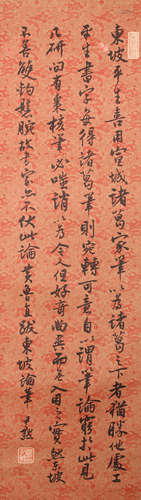 東坡平生喜用宣城諸葛家筆以為諸葛之下者猶勝他處工
平生書字每得諸葛筆則宛轉可意自以謂筆論窮於此見
几研間有棗核筆必嗤誚以為今人但好奇尚異而無入用之實然東坡
不善雙鉤懸腕故書家亦不伏此論黃魯直跋東坡論筆